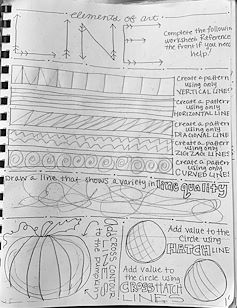 elements of art
LINE
Complete the following
worksheet. Reference
the front if you need
help!
Create a pattern
using only
VERTICAL LINES
Create a pattern
using only
HORIZONTAL LINE
Create a pattern
using only
DIAGONAL LINE
Create a pattern
using only
ZIGZAG LINES
Create a pattern
using only
CURVED LINES
Draw a line that shows a variety in line quality
add
LINES
to the pumpkin
Add value to the
circle using
HATCH LINE
Add value to
the circle using
CROSSHATCH
LINES